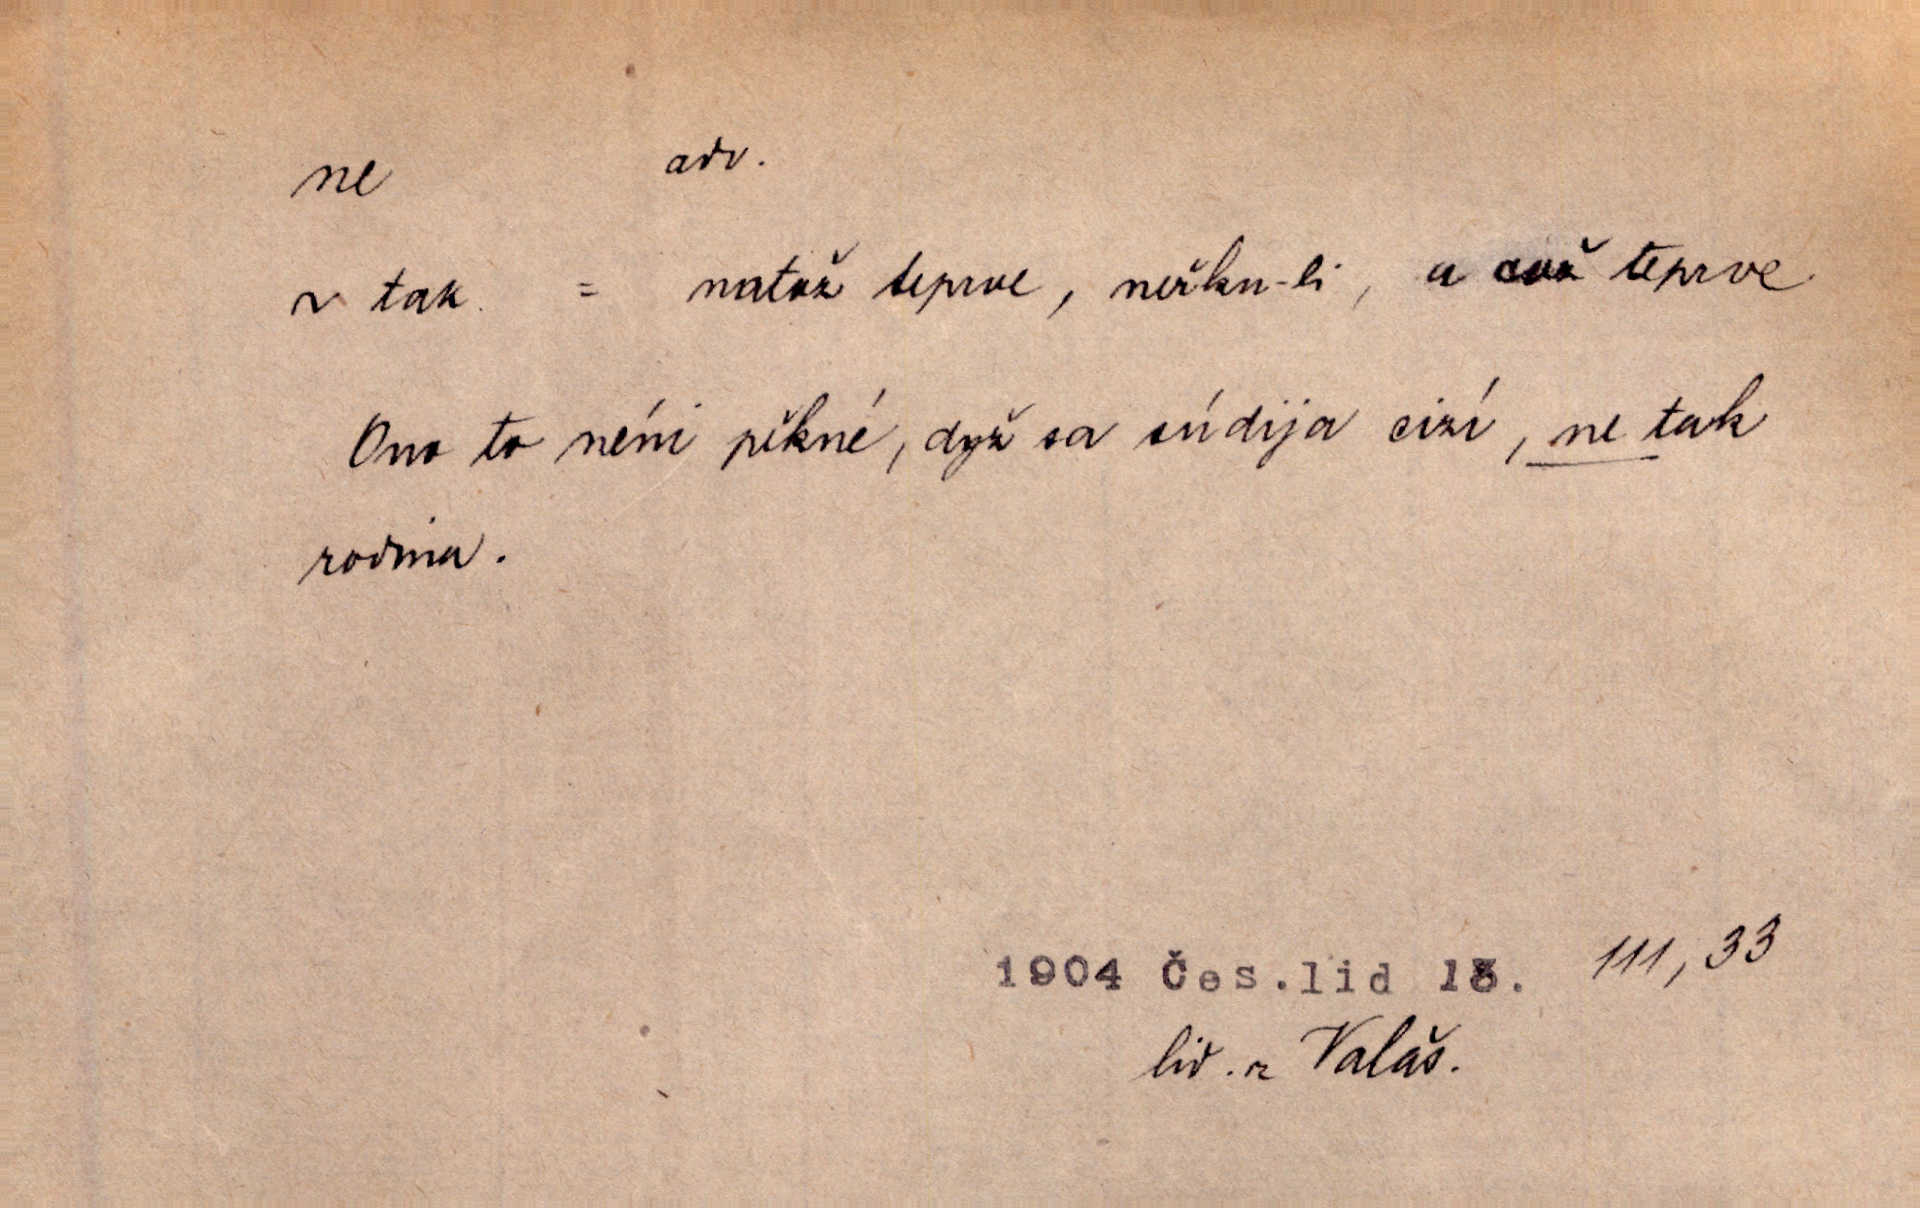 ne adv.
~ tak. = natož teprve, neřku-li, a což teprve
Ono to néni pěkné, dyž sa súdija cizí, ne tak
rodina.
1904 Čes.lid 13. 111, 33
lid. z Valaš.